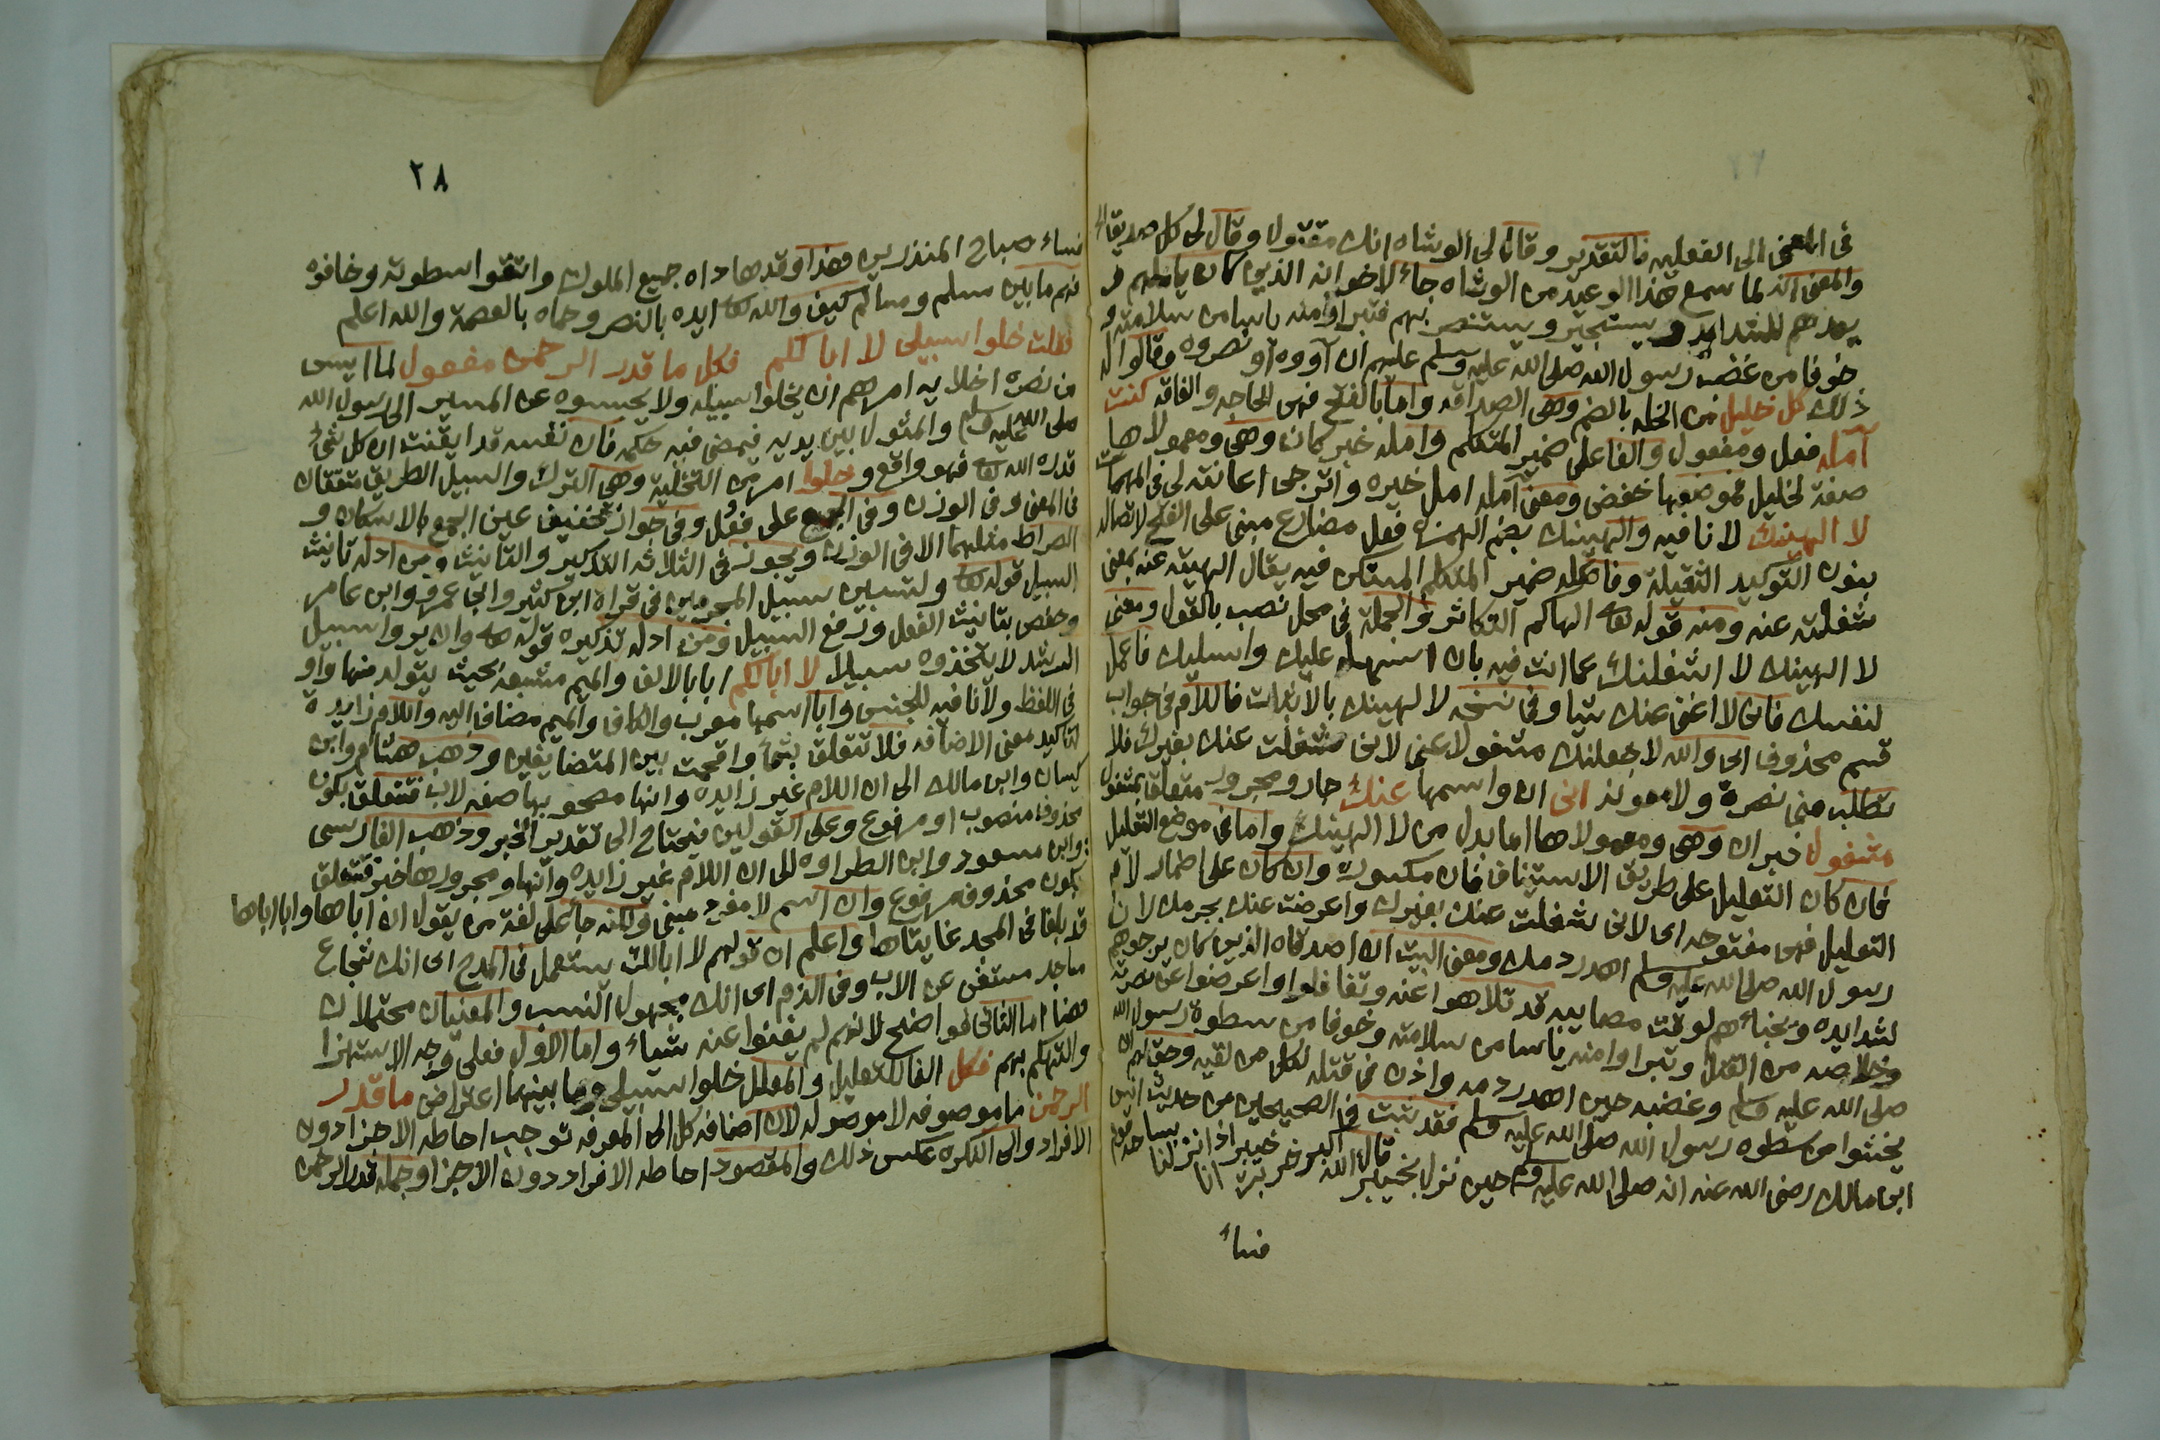 في المعنى الى الفعلين فالتقدير وقال لي الوشاه انك مقتول وقال لي كل صديق الخ
والمعنى انه لما سمع هذا الوعيد من الوشاه جاء لاخوانه الذين كان ياملهم و
يعدهم للشدايد ويستجير ويستنصر بهم فتبراوا منه ياسا من سلامته و
خوفا من غضب رسول الله صلى الله عليه وسلم عليهم ان آووه او نصروه وقالوا له
ذلك كل خليل من الخله بالضم وهى الصداقه واما بالفتح فهى الحاجه والفاقه كنت
آمله فعل ومفعول والفاعل ضمير المتكلم وامله خبر كان وهى ومعمولاها
صفة لخليل فموضعها خفض ومعنى آمله امل خيره واترجى اعانته لي في المهمات
لا الهينك لا نافيه والهينك بضم الهمزه فعل مضارع مبنى على الفتح لاتصاله
بنون التوكيد الثقيلة وفاعله ضمير المتكلم المستكن فيه يقال الهيته عنه بمعنى
شغلته عنه ومنه قوله تعا الهاكم التكاثر والجملة في محل نصب بالقول ومعنى
لا الهينك لا اشغلنك عما انت فيه بان اسهله عليك واسليك فاعمل
لنفسك فاني لا اغنى عنك شيا وفي نسخه لالهينك بالاثبات فاللام في جواب
قسم محذوف اى والله لاجعلنك مشغولا عنى لانى شغلت عنك بغيرك فلا
تطلب منى نصرة ولا معونه انى ان واسمها عنك جار ومجرور متعلق بمشغول
مشغول خبر ان وهى ومعمولاها اما بدل من لا الهينك واما في موضع التعليل
فان كان التعليل على طريق الاستيناف فان مكسوره وان كان على اضمار لام
التعليل فهى مفتوحه اى لانى شغلت عنك بغيرك واعرضت عنك بجرمك لان
رسول الله صلى الله عليه وسلم اهدر دمك ومعنى البيت ان اصدقاه الذين كان يرجوهم
لشدايده ويخباهم لوقت مصايبه قد تلاهوا عنه وتغافلوا واعرضوا عن نصرته
وخلاصه من القتل وتبراوا منه ياسا من سلامته وخوفا من سطوة رسول الله
صلى الله عليه وسلم وغضبه حين اهدر دمه واذن في قتله لكل من لقيه وحق لهم ان
يخشوا من سطوه رسول الله صلى الله عليه وسلم فقد ثبت في الصحيحين من حديث انس
ابن مالك رضى الله عنه انه صلى الله عليه وسلم حين نزل بخيبر قال الله اكبر خربت خيبر انا اذا نزلنا بساحة قوم
فساء
٢٨
فساء صباح المنذرين فهذا وقد هاداه جميع الملوك واتقوا سطوته وخافوه
فهم ما بين مسلم ومسالم كيف والله تعا ايده بالنصر وحماه بالعصمة والله اعلم
فقلت خلوا سبيلي لا ابا لكم فكل ما قدر الرحمن مفعول لما ايس
من نصرة اخلايه امرهم ان يخلوا سبيله ولا يحبسوه عن المسير الى رسول الله
صلى الله عليه وسلم والمثول بين يديه فيمضى فيه حكمه فان نفسه قد ايقنت ان كل شئ
قدره الله تعا فهو واقع وخلوا امر من التخلية وهى الترك والسبيل الطريق متفقان
في المعنى وفي الوزن وفي الجمع على فعل وفي جواز تخفيف عين الجمع بالاسكان و
الصراط مثلهما الا في الوزن ويجوز في الثلاثه التذكير والتانيث ومن ادله تانيث
السبيل قوله تعا ولتستبين سبيل المجرمين في قراة ابن كثير وابى عمرو وابن عامر
وحفص بتانيث الفعل ورفع السبيل ومن ادله تذكيره قوله تعا وان يروا سبيل
الرشد لا يتخذوه سبيلا لا ابا لكم ابا بالالف والميم مشبعة بحيث يتولد منها واو
في اللفظ ولا نافيه للجنس وابا اسمها معرب والكاف والميم مضاف اليه واللام زايدة
لتاكيد معنى الاضافه فلا تتعلق بشئ واقحمت بين المتضايفين وذهب هشام وابن
كيسان وابن مالك الى ان اللام غير زايده وانها ومصحوبها صفه لاب فتتعلق بكون
محذوف منصوب او مرفوع وعلى القولين فيحتاج الى تقدير الخبر وذهب الفارسى
وابن مسعود وابن الطراوه الى ان اللام غير زايده وانها ومجرورها خبر فتتعلق
بكون محذوف مرفوع وان اسم لا مفرد مبنى ولكنه جاء على لغة من يقول ان اباها وابا اباها
قد بلغا في المجد غايتاها واعلم ان قولهم لا ابا لك يستعمل في المدح اى انك شجاع
ماجد مستغن عن الاب وفي الذم اى انك مجهول النسب والمعنيان محتملان
هنا اما الثاني فواضح لانهم لم يغنوا عنه شياء واما الاول فعلى وجه الاستهزا
والتهكم بهم فكل الفا للتعليل والمعلل خلوا سبيلي وما بينهما اعتراض ما قدر
الرحمن ما موصوفه لا موصوله لان اضافه كل الى المعرفه توجب احاطه الاجزا دون
الافراد والى النكره عكس ذلك والمقصود احاطه الافراد دون الاجزا وجمله قدر الرحمن